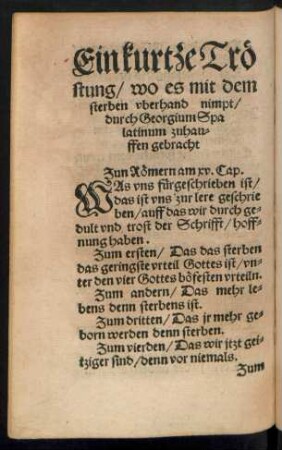 Ein kurtze Trö
stung/ wo es mit dem
sterben vberhand nimpt/
durch Georgium Spa
latinum zuhau-
ffen gebracht
Zun Römern am xv. Cap.
WAs vns fürgeschrieben ist/
das ist vns zur lere geschrie
ben/ auff das wir durch ge-
dult vnd trost der Schrifft/ hoff-
nung haben.
Zum ersten/ Das das sterben
das geringste vrteil Gottes ist/ vn-
ter den vier Gottes bösesten vrteiln.
Zum andern/ Das mehr le-
bens denn sterbens ist.
Zum dritten/ Das jr mehr ge-
born werden denn sterben.
Zum vierden/ Das wir jtzt gei-
tziger sind/ denn vor niemals.
Zum